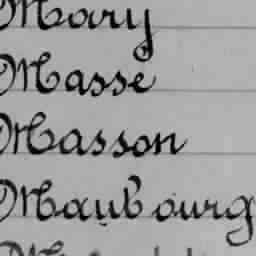 Mary
Masse
Masson
Maubourg